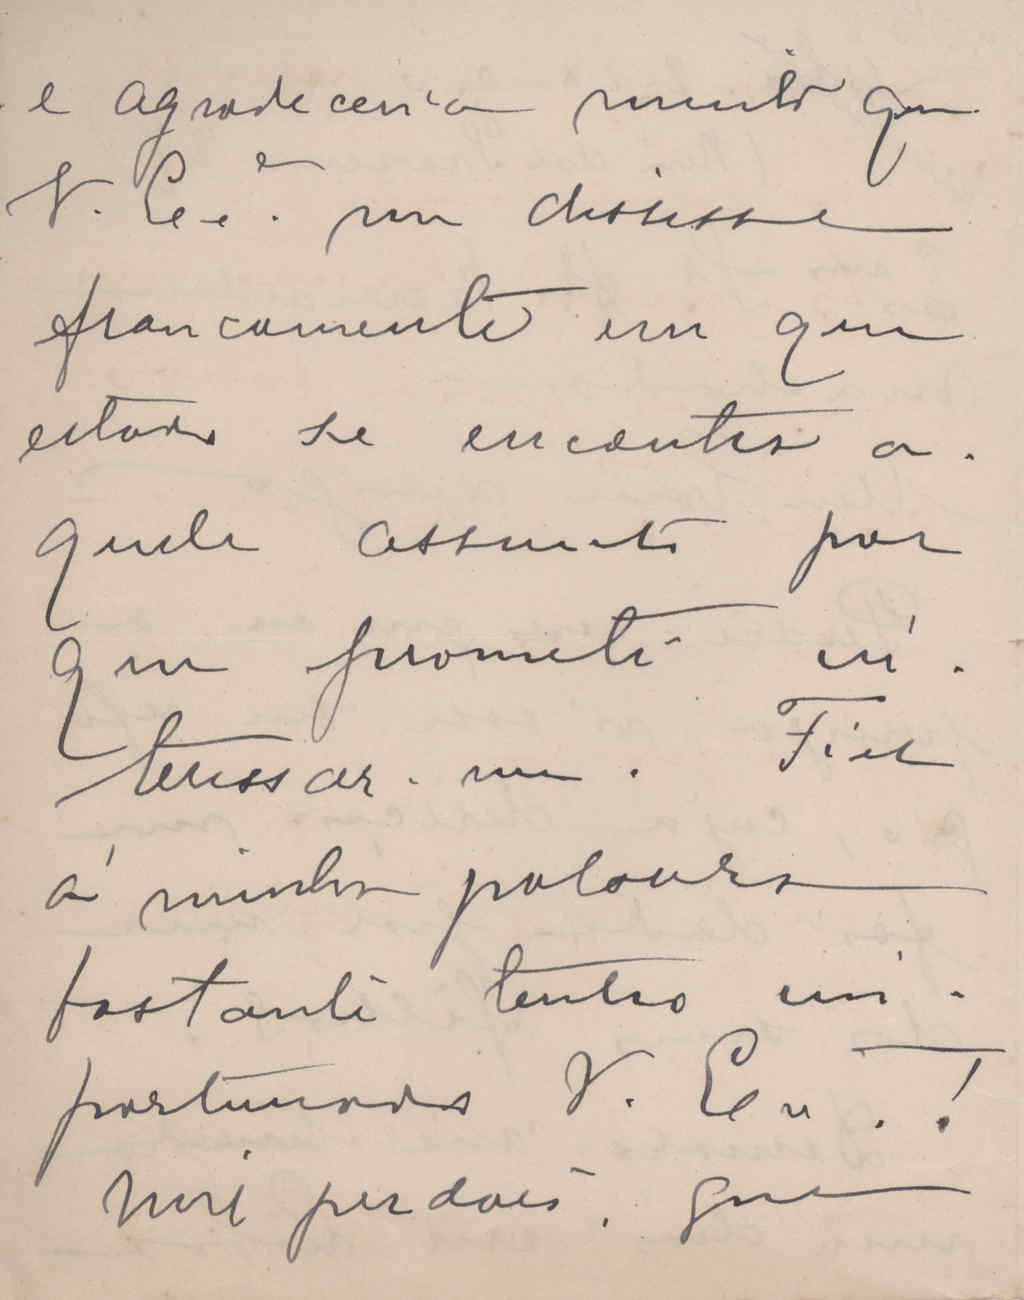 e agradeceria muito que
V. Ex.ª me dissesse
francamente em que
estado se encontra a-
quele assumto por
que prometi in-
teressar-me. Fiel
á minha palavra
bastante tenho im-
portunado V. Ex.ª!
Mil perdões, que